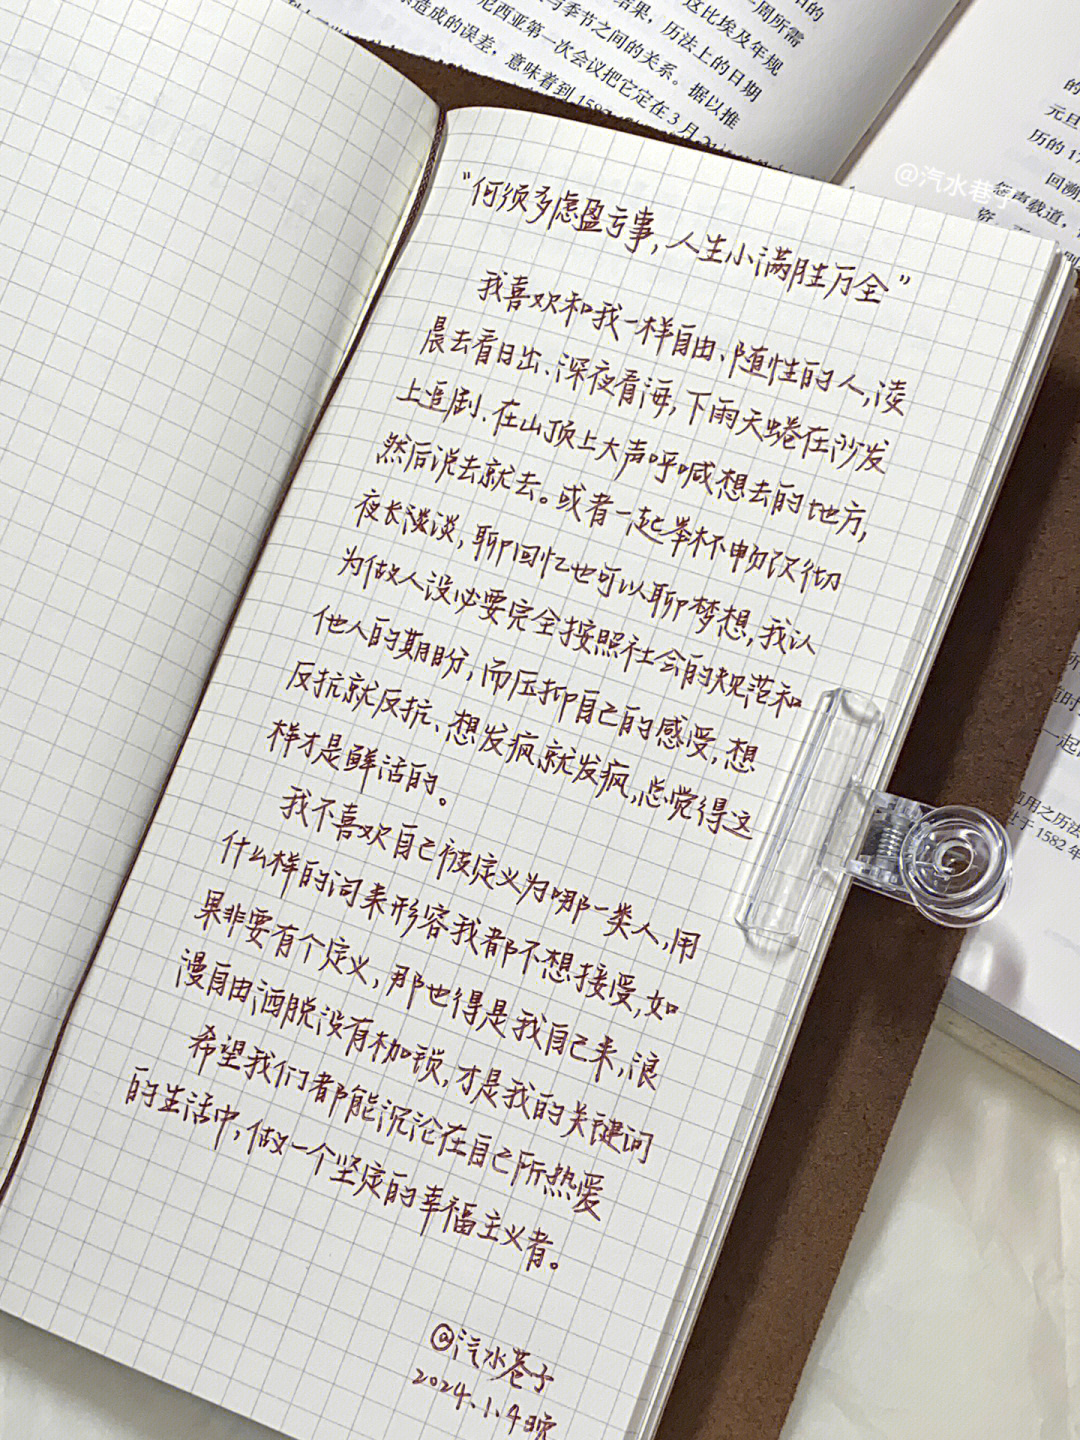 日的
一周所需
结果，历法上的日期
这比埃及年规
与季节之间的关系。据以推
尼西亚第一次会议把它定在3月21
造成的误差，意味着到158
元旦
历的17
回溯
怨声载道，
@汽水巷子
“何须多虑盈亏事，人生小满胜万全”
我喜欢和我一样自由、随性的人，凌
晨去看日出、深夜看海，下雨天蜷在沙发
上追剧、在山顶上大声呼喊想去的地方，
然后说去就去。或者一起举杯畅饮彻
夜长谈，聊回忆也可以聊梦想，我认
为做人没必要完全按照社会的规范和
他人的期盼，而压抑自己的感受，想
反抗就反抗、想发疯就发疯，总觉得这
样才是鲜活的。
我不喜欢自己被定义为哪一类人，用
什么样的词来形容我都不想接受，如
果非要有个定义，那也得是我自己来，浪
漫自由洒脱没有枷锁，才是我的关键词
希望我们都能沉沦在自己所热爱
的生活中，做一个坚定的幸福主义者。
@汽水巷子
2024.1.4晚
一起
通用之历法
世于1582年